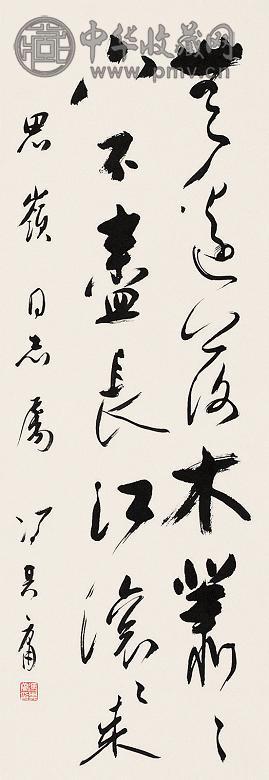 中华收藏网
www.pmv.cn
無邊落木蕭〻
下不盡長江滾〻來
思嶺同志屬 馮其庸